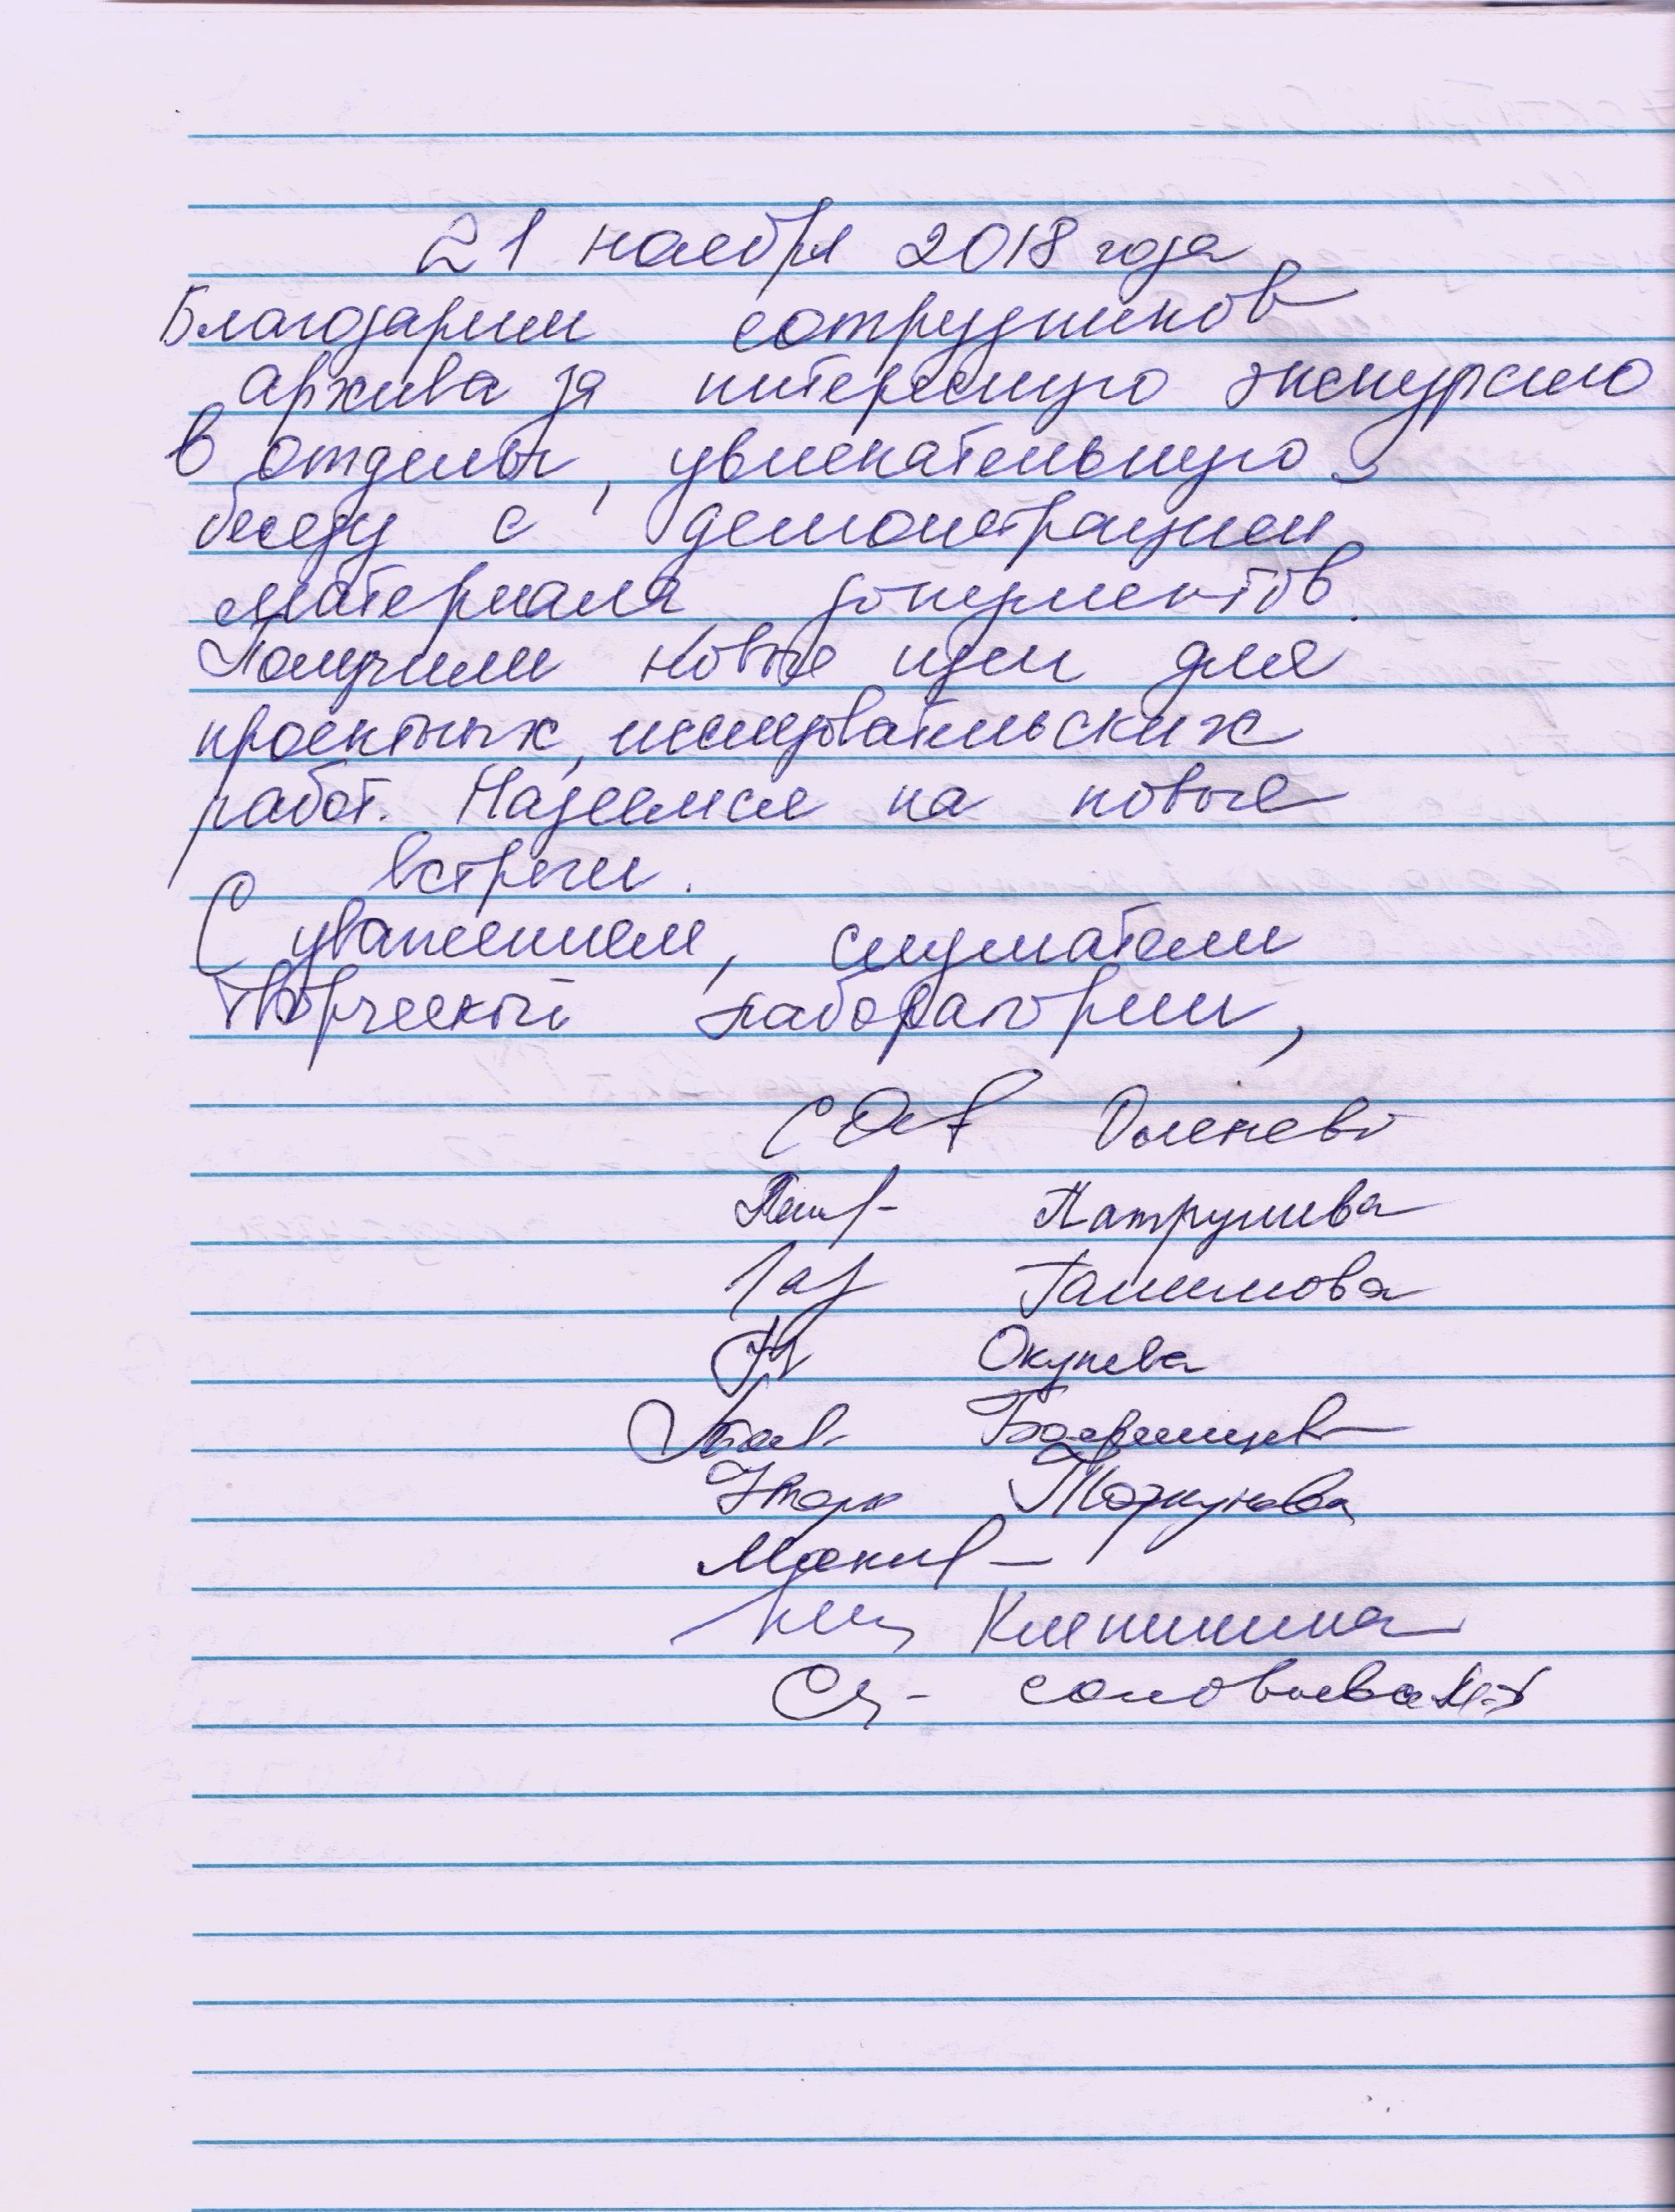 21 ноября 2018 года
Благодарим сотрудников
архива за интересную экскурсию
в отделы, увлекательную
беседу с демонстрацией
материала документов.
Получили новые идеи для
проектных, исследовательских
работ. Надеемся на новые
встречи.
С уважением, слушатели
творческой лаборатории,
Патрушева
Галимова
Окунева
Клепинина
Соловьева